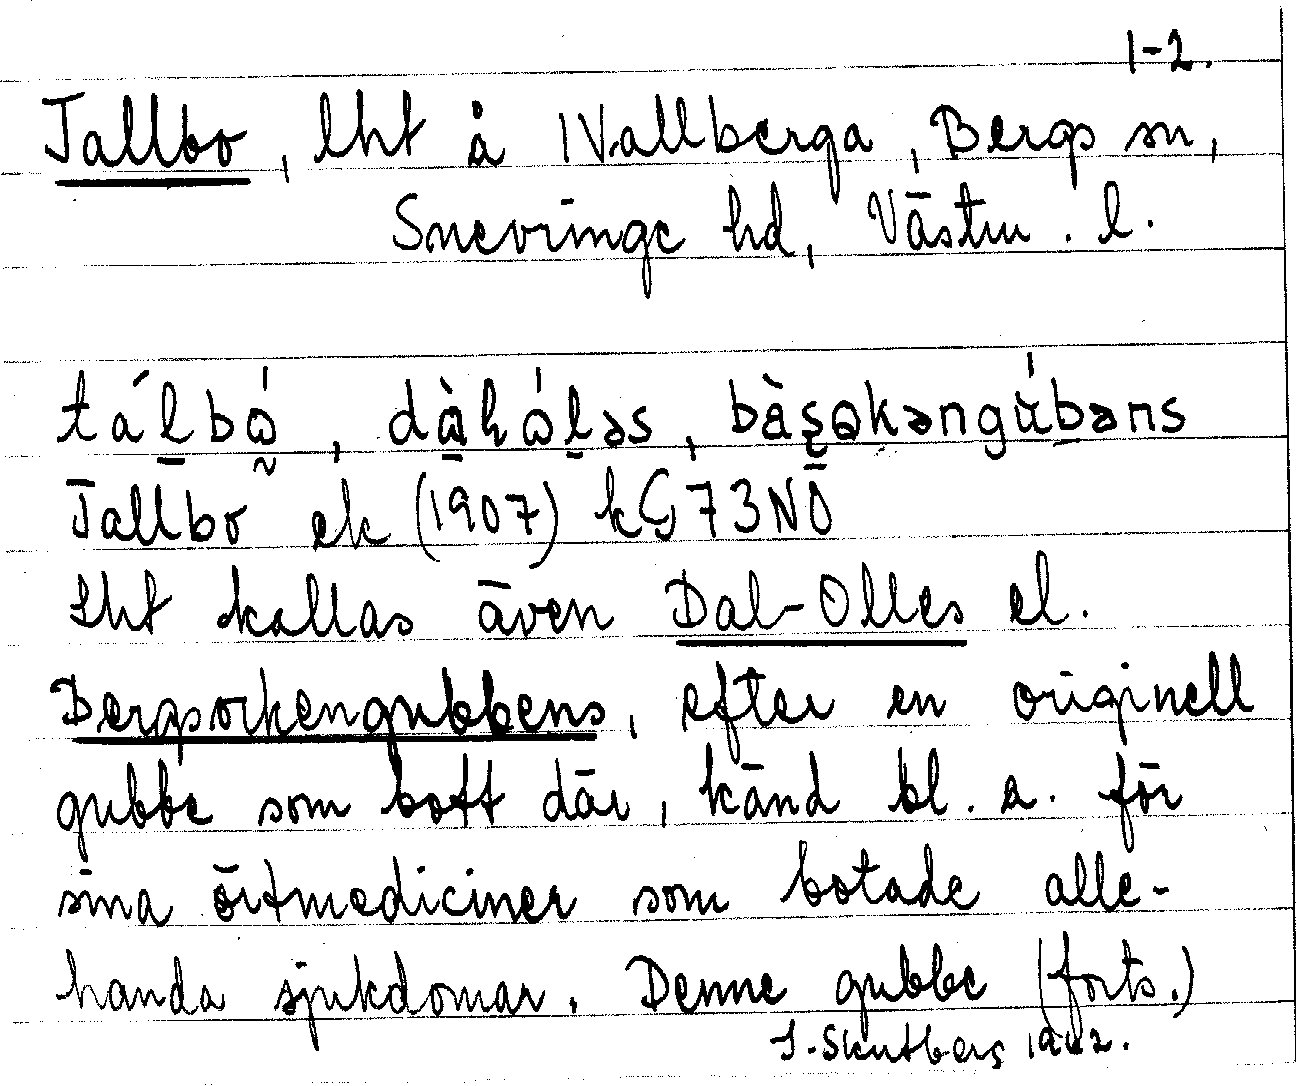 1-2.
Tallbo, lht å Vallberga, Bergs sn,
Snevringe hd, Västm. l.
Tallbo ek (1907) kG73NÖ
Lht kallas även Dal-Olles el.
Bergsorkengubbens, efter en originell
gubbe som bott där, känd bl. a. för
sina örtmediciner som botade alle-
handa sjukdomar. Denne gubbe (forts.)